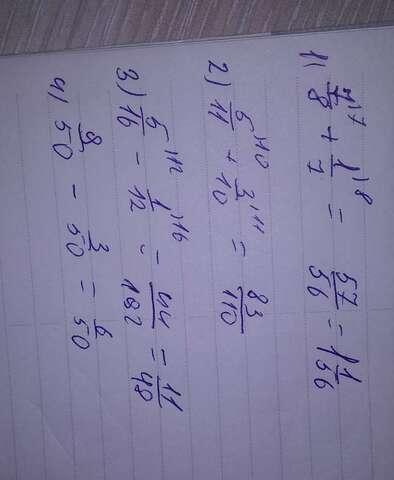 1) 7/8 ⁾⁷ + 1/7 ⁾⁸ = 57/56 = 1 1/56
2) 5/11 ⁾¹⁰ + 3/10 ⁾¹¹ = 83/110
3) 5/16 ⁾¹² - 1/12 ⁾¹⁶ = 44/192 = 11/48
4) 8/50 - 3/50 = 6/50